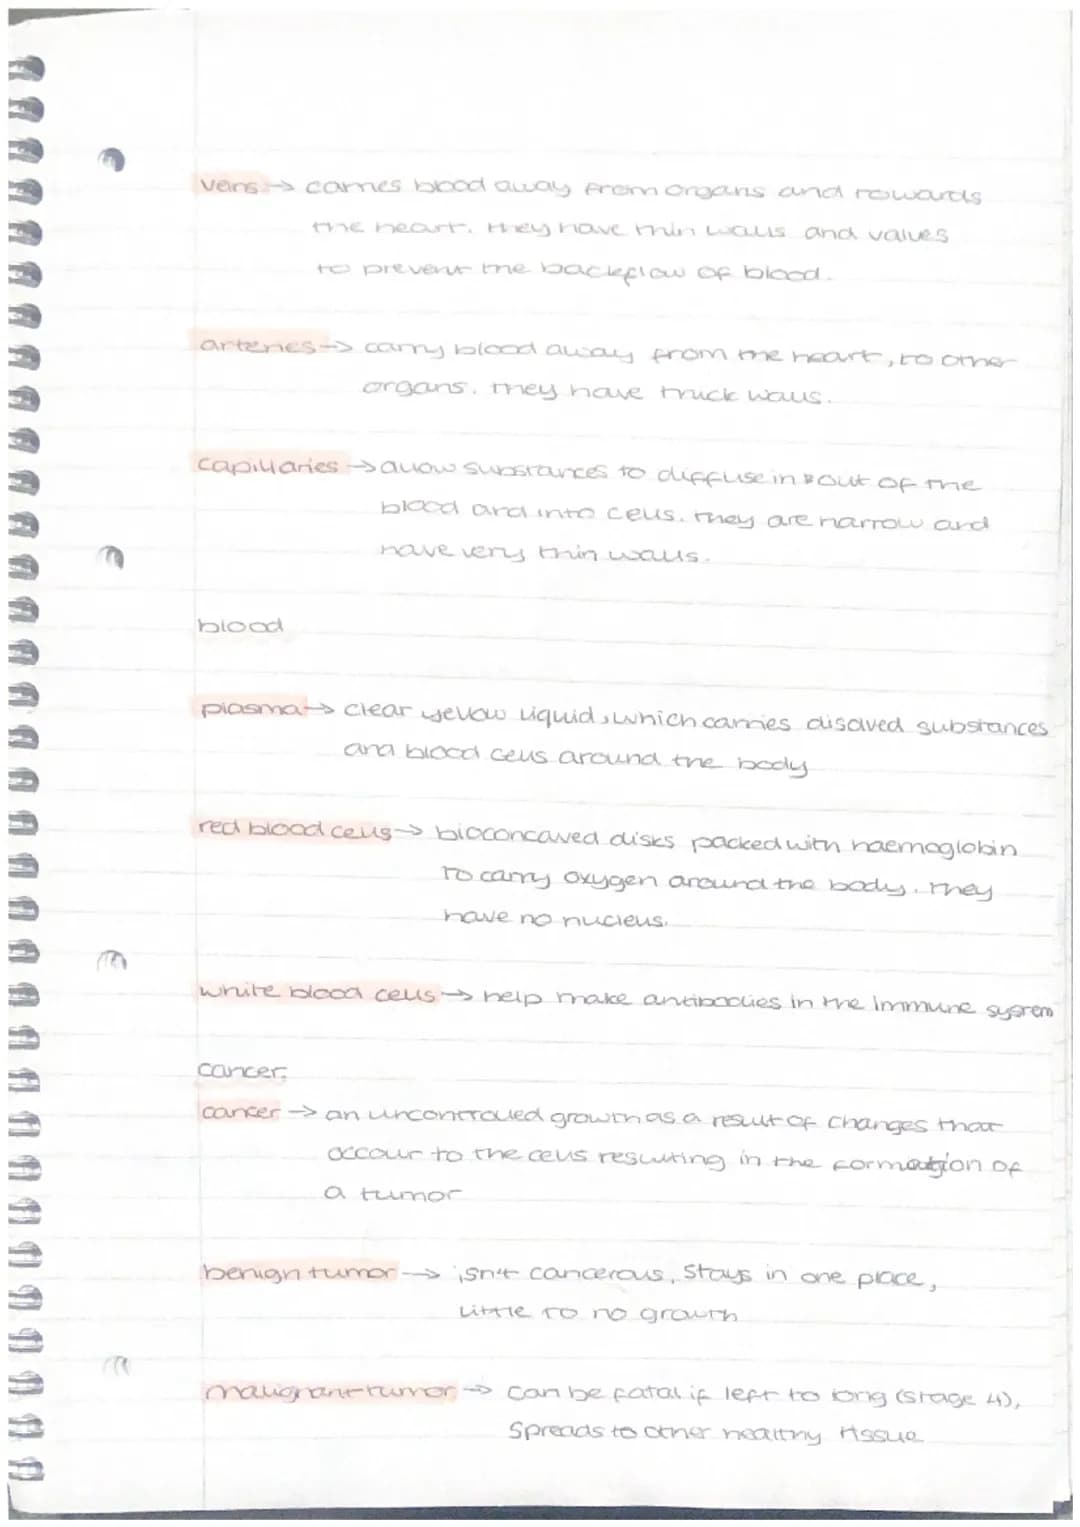 veins → carries blood away from organs and towards
the heart. they have thin walls and valves
to prevent the backflow of blood.
arteries → carry blood away from the heart, to other
organs. they have thick walls.
capillaries → allow substances to diffuse in & out of the
blood and into cells. they are narrow and
have very thin walls.
blood
plasma → clear yellow liquid, which carries disolved substances
and blood cells around the body
red blood cells → bioconcaved disks packed with haemoglobin
to carry oxygen around the body. they
have no nucleus.
white blood cells → help make antibodies in the immune system
cancer:
cancer → an uncontrolled growth as a result of changes that
occour to the cells resulting in the formation of
a tumor
benign tumor → isn't cancerous, stays in one place,
little to no growth
malignant tumor → can be fatal if left to long (stage 4),
spreads to other healthy tissue